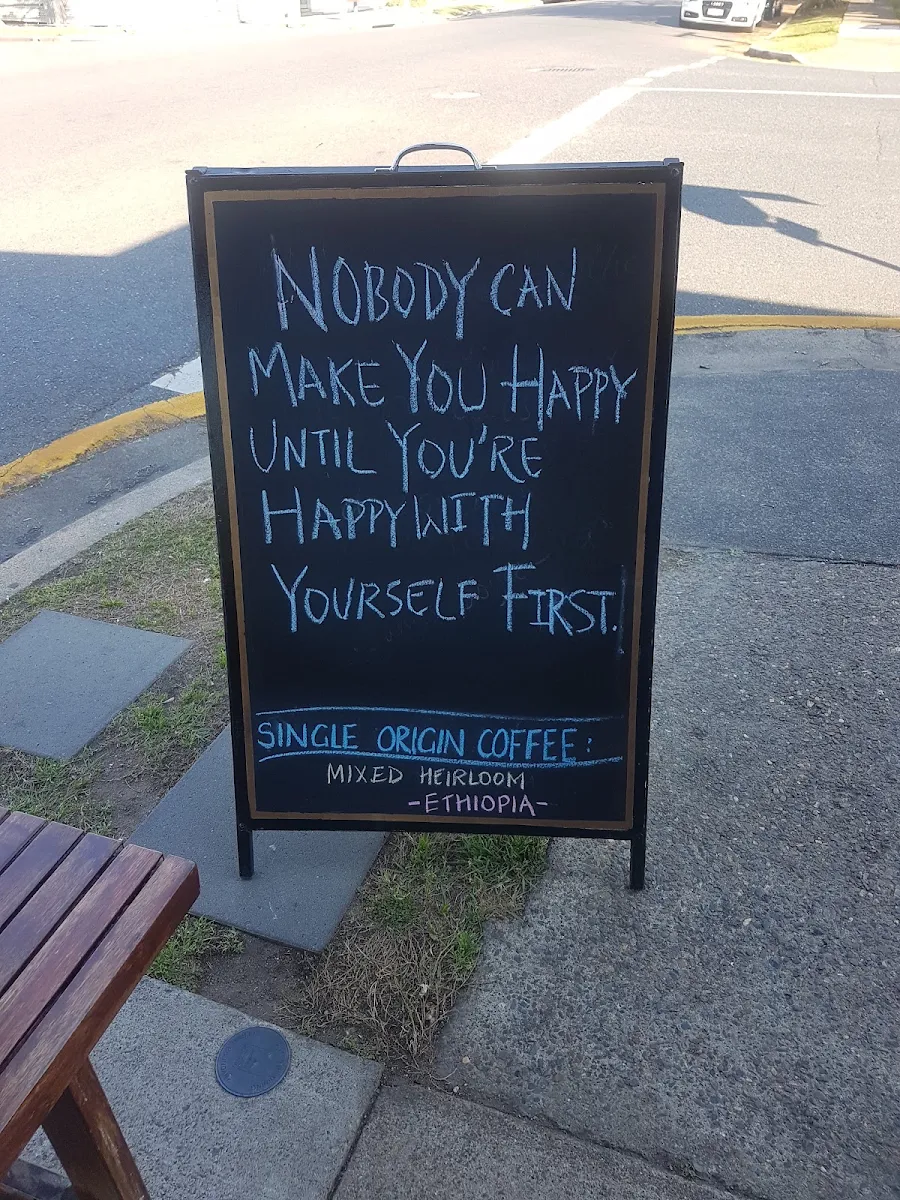 NOBODY CAN
MAKE YOU HAPPY
UNTIL YOU'RE
HAPPY WITH
YOURSELF FIRST.
SINGLE ORIGIN COFFEE:
MIXED HEIRLOOM
-ETHIOPIA-